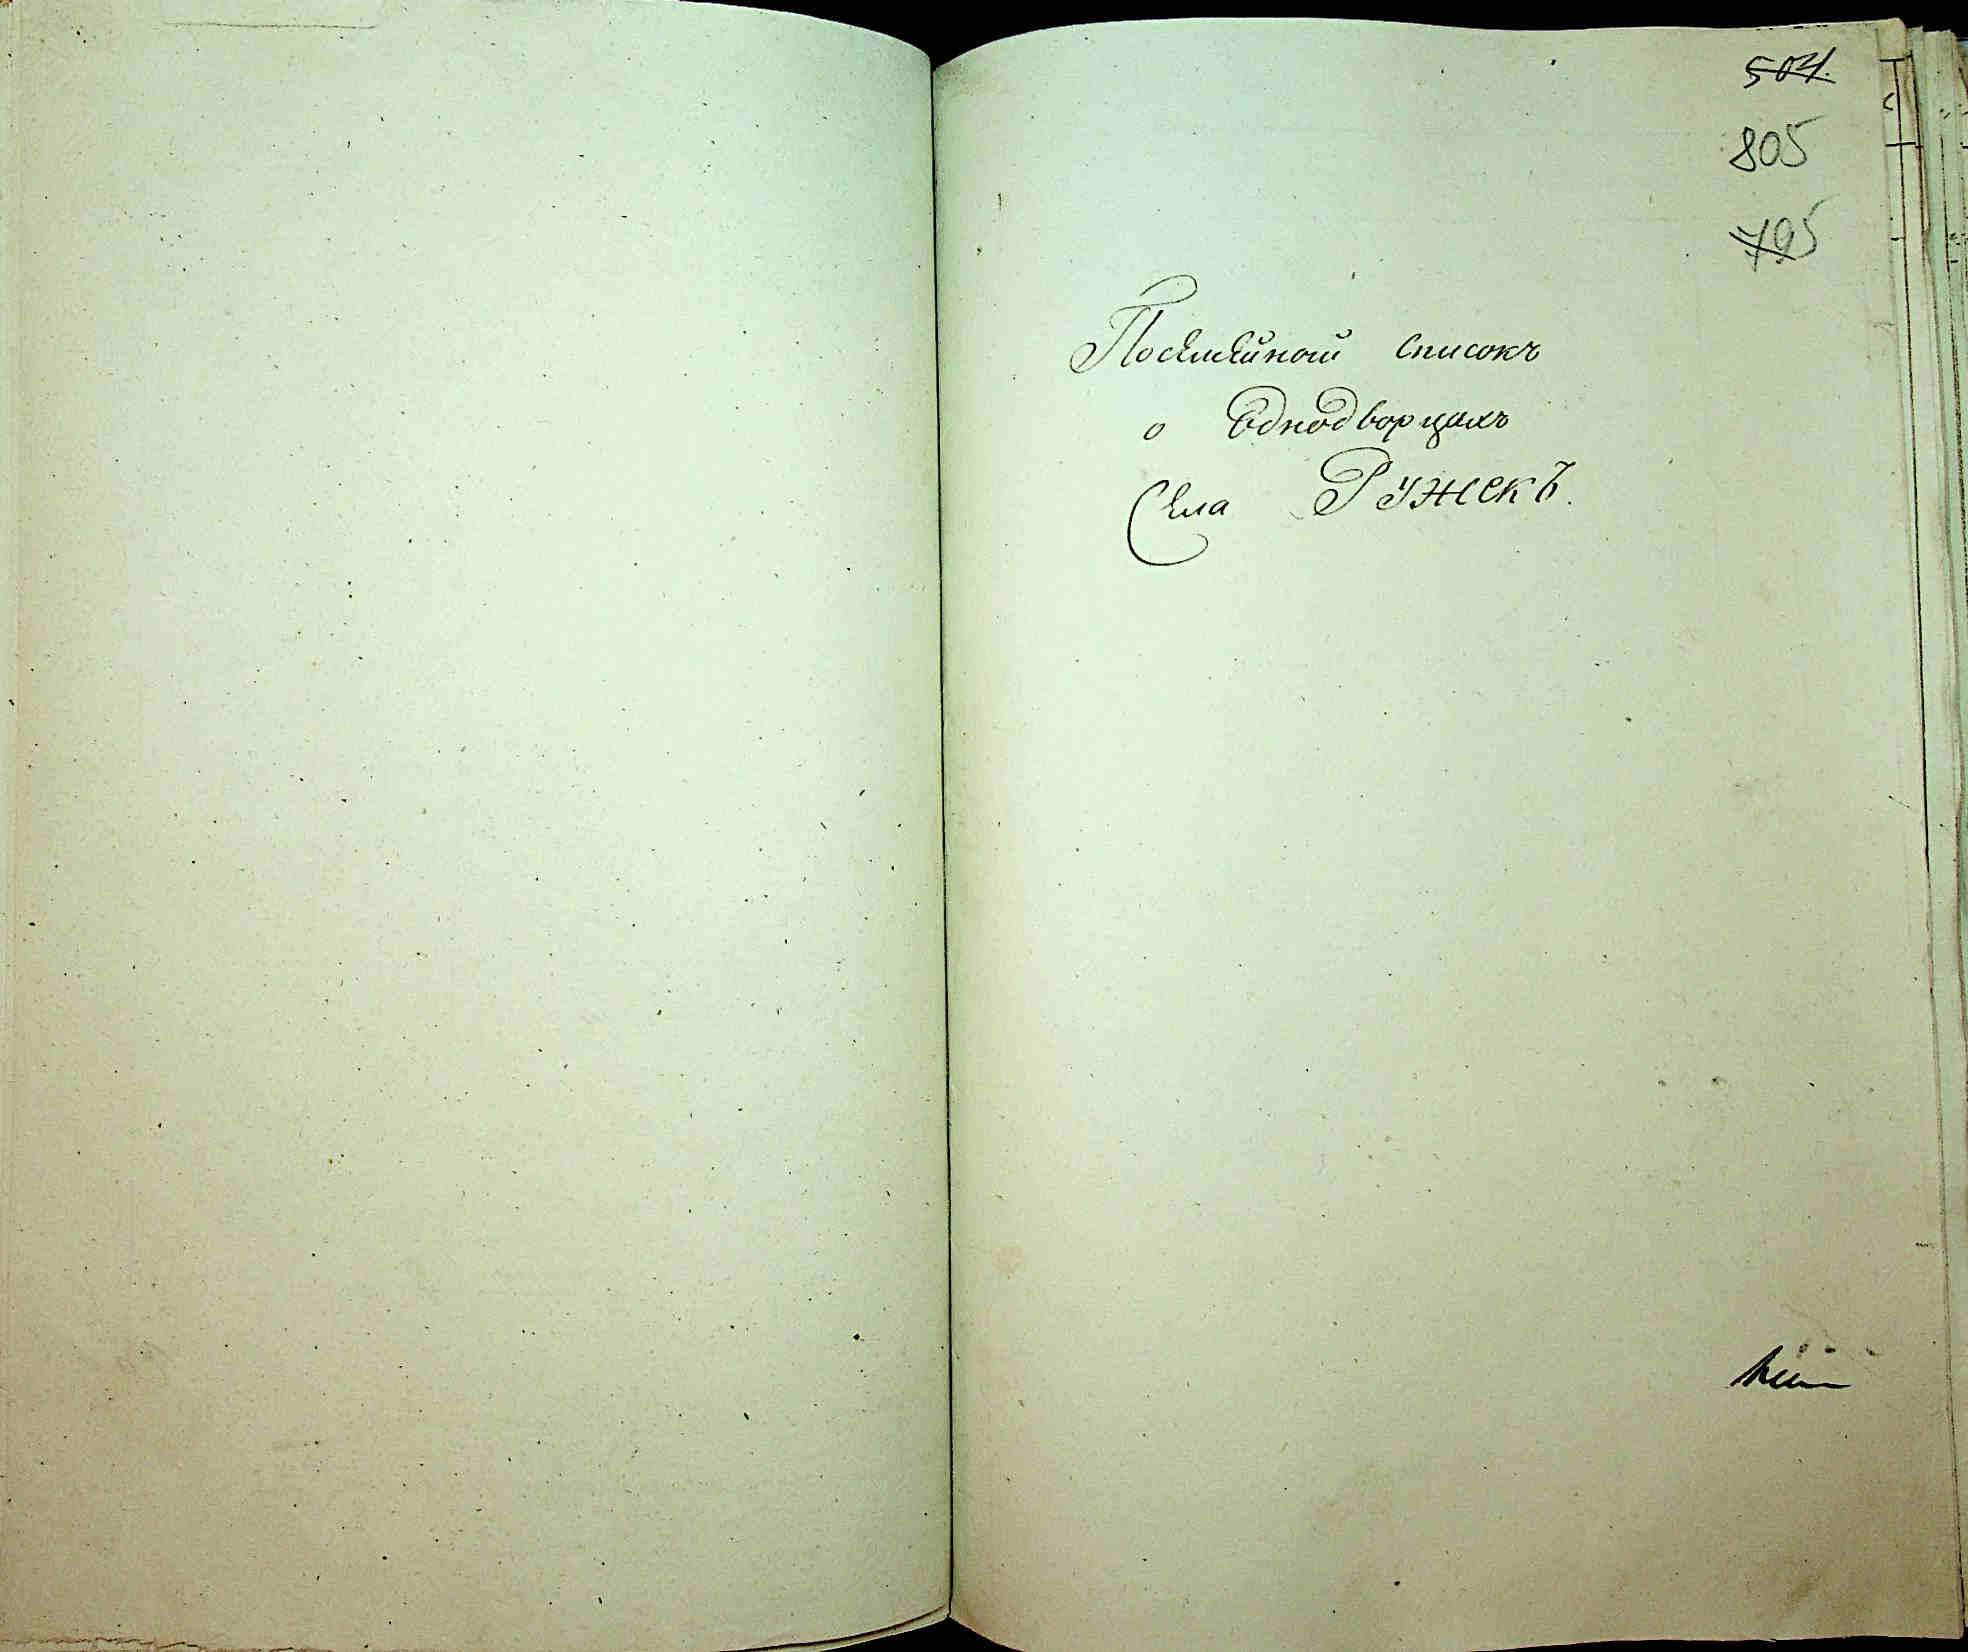 504.
805
795
Посемейной списокъ
о Однодворцахъ
Села Ружекъ.